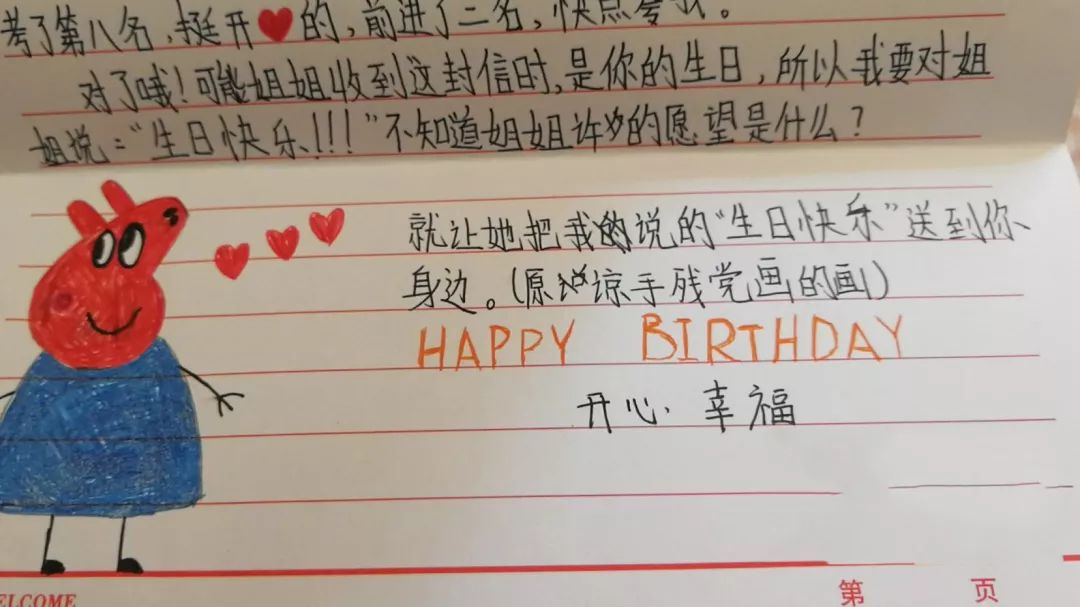 考了第八名,挺开❤的,前进了二名,快点夸我。
对了哦!可能姐姐收到这封信时,是你的生日,所以我要对姐
姐说:“生日快乐!!!”不知道姐姐许的愿望是什么?
就让她把我说的“生日快乐”送到你
身边。(原谅手残党画的画)
HAPPY BIRTHDAY
开心、幸福
ELCOME
第 页